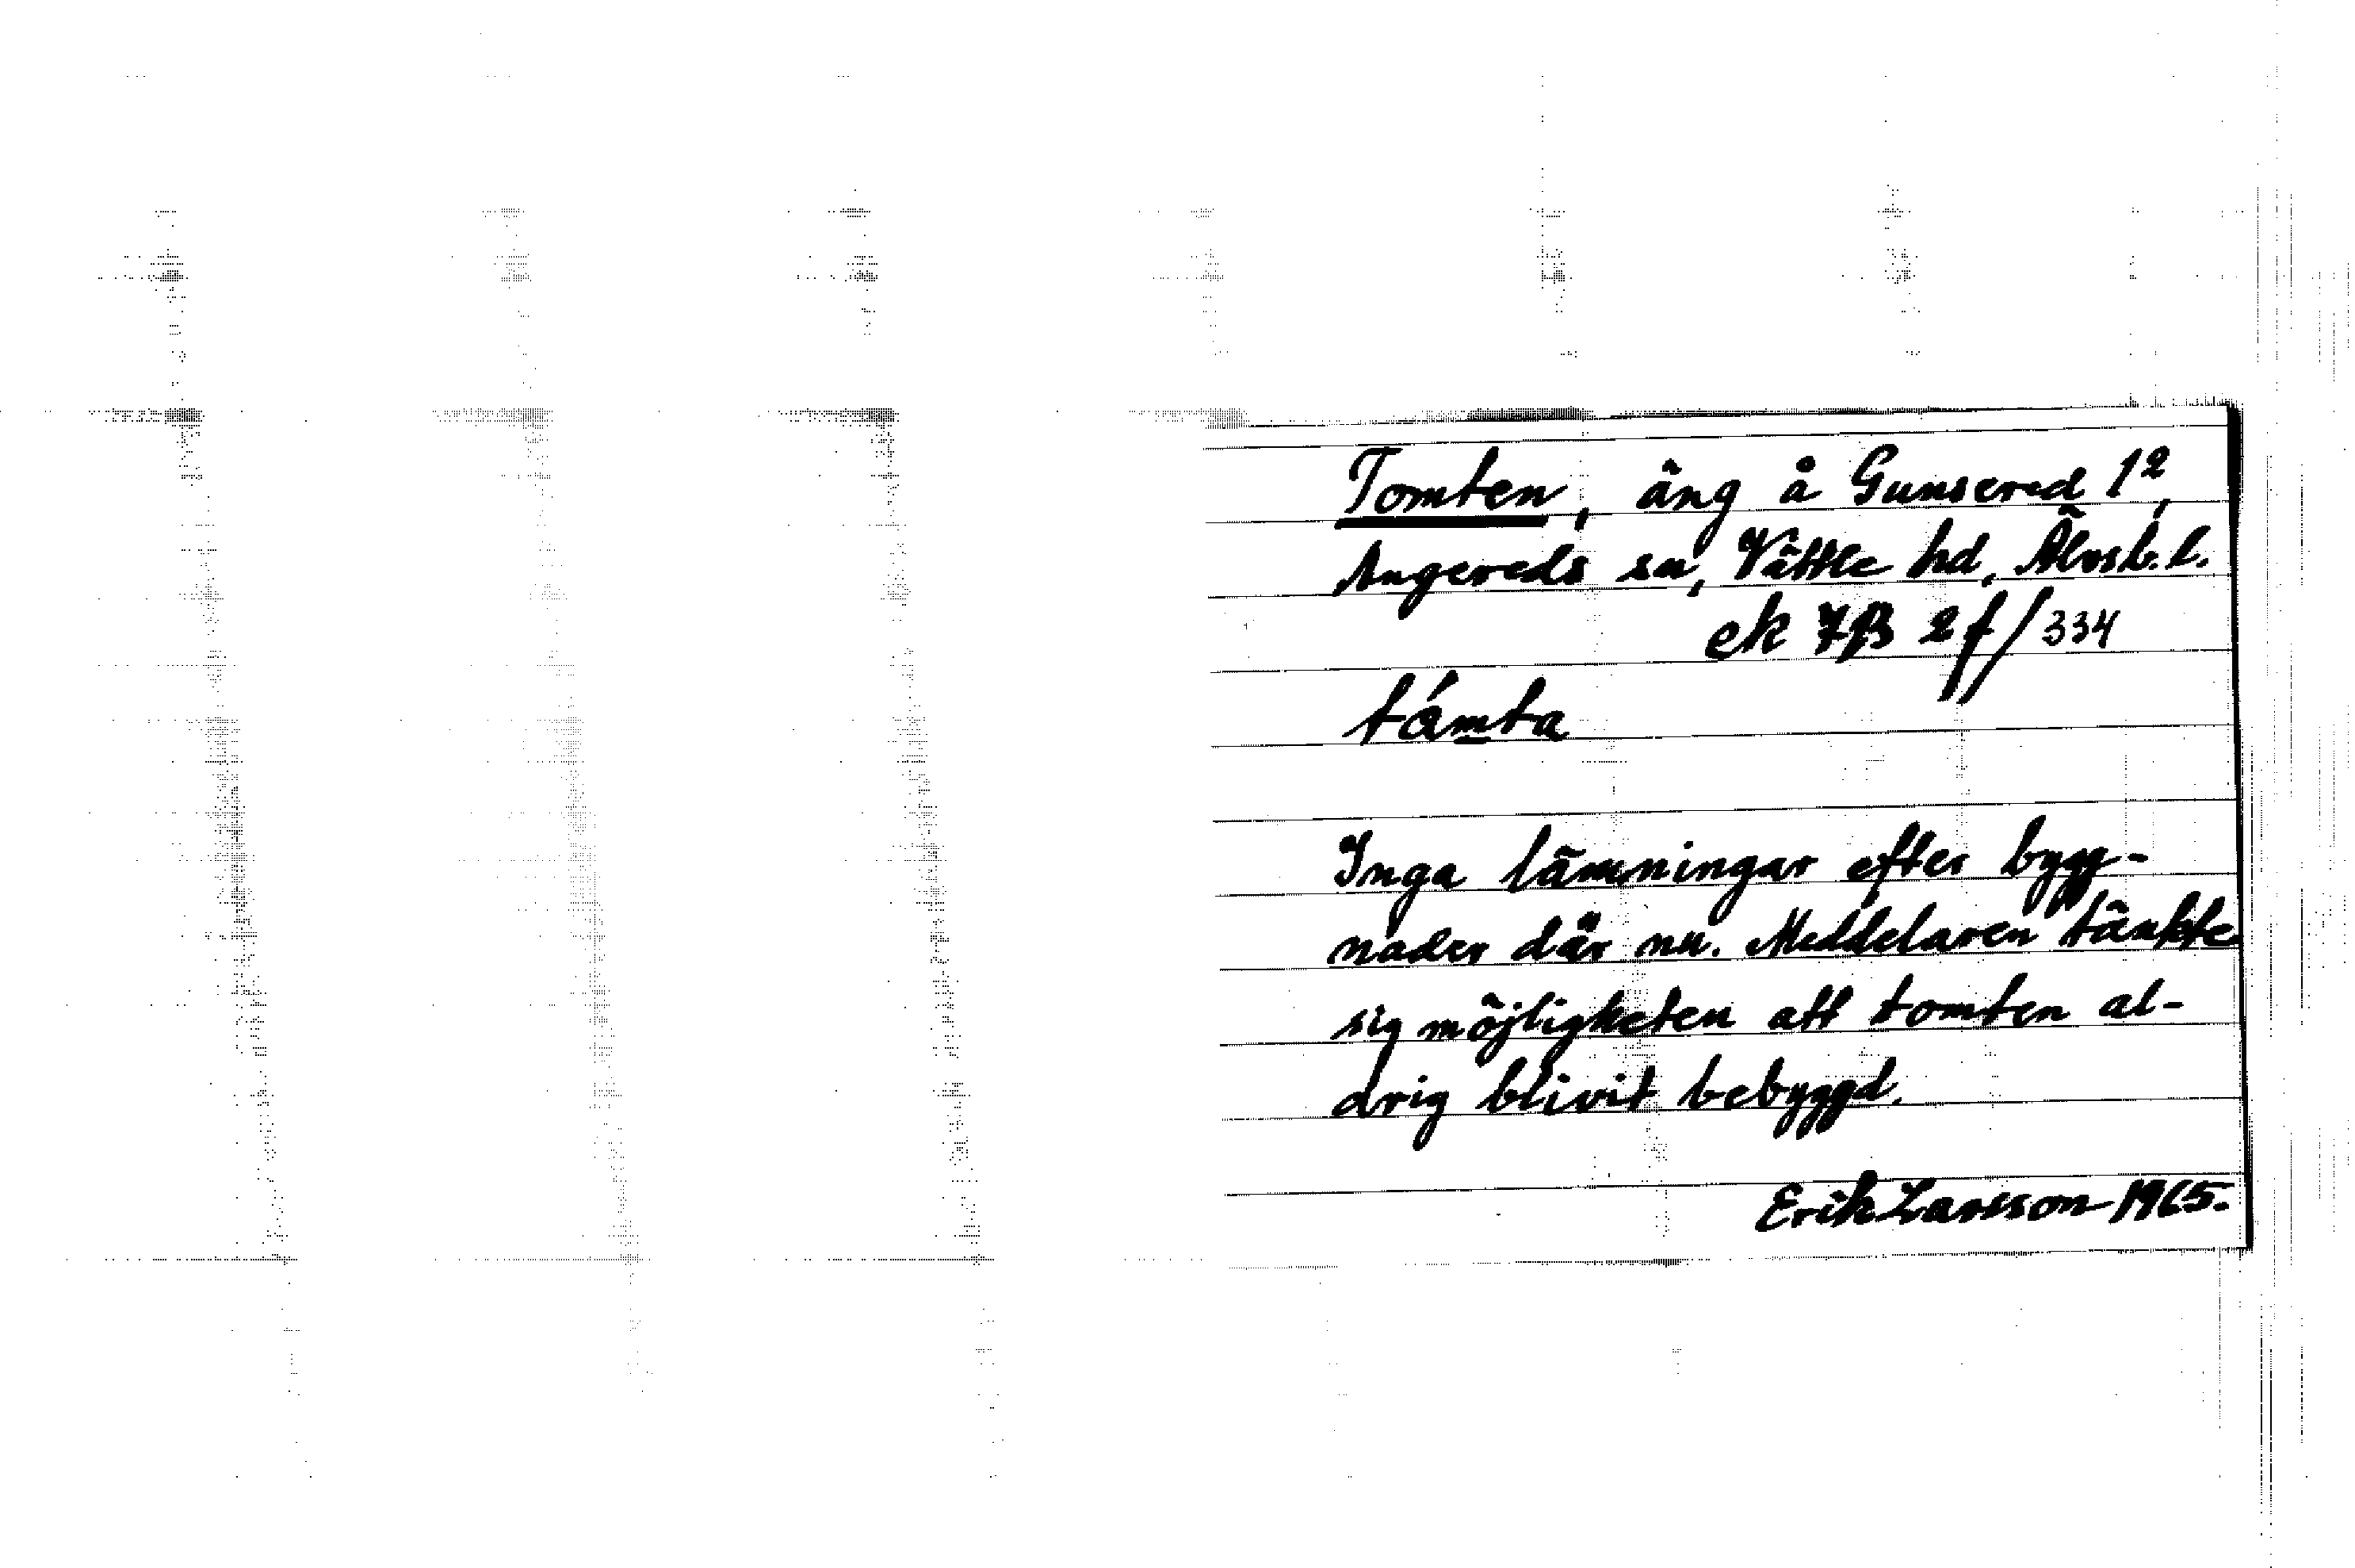 Tomten, äng å Gunsered 1²,
Angereds sn, Vättle hd, Älvsb. l.
ek 7B 2f/334
támta
Inga lämningar efter bygg-
nader där nu. Meddelaren tänkte
sig möjligheten att tomten al-
drig blivit bebyggd.
Erik Larsson 1965.